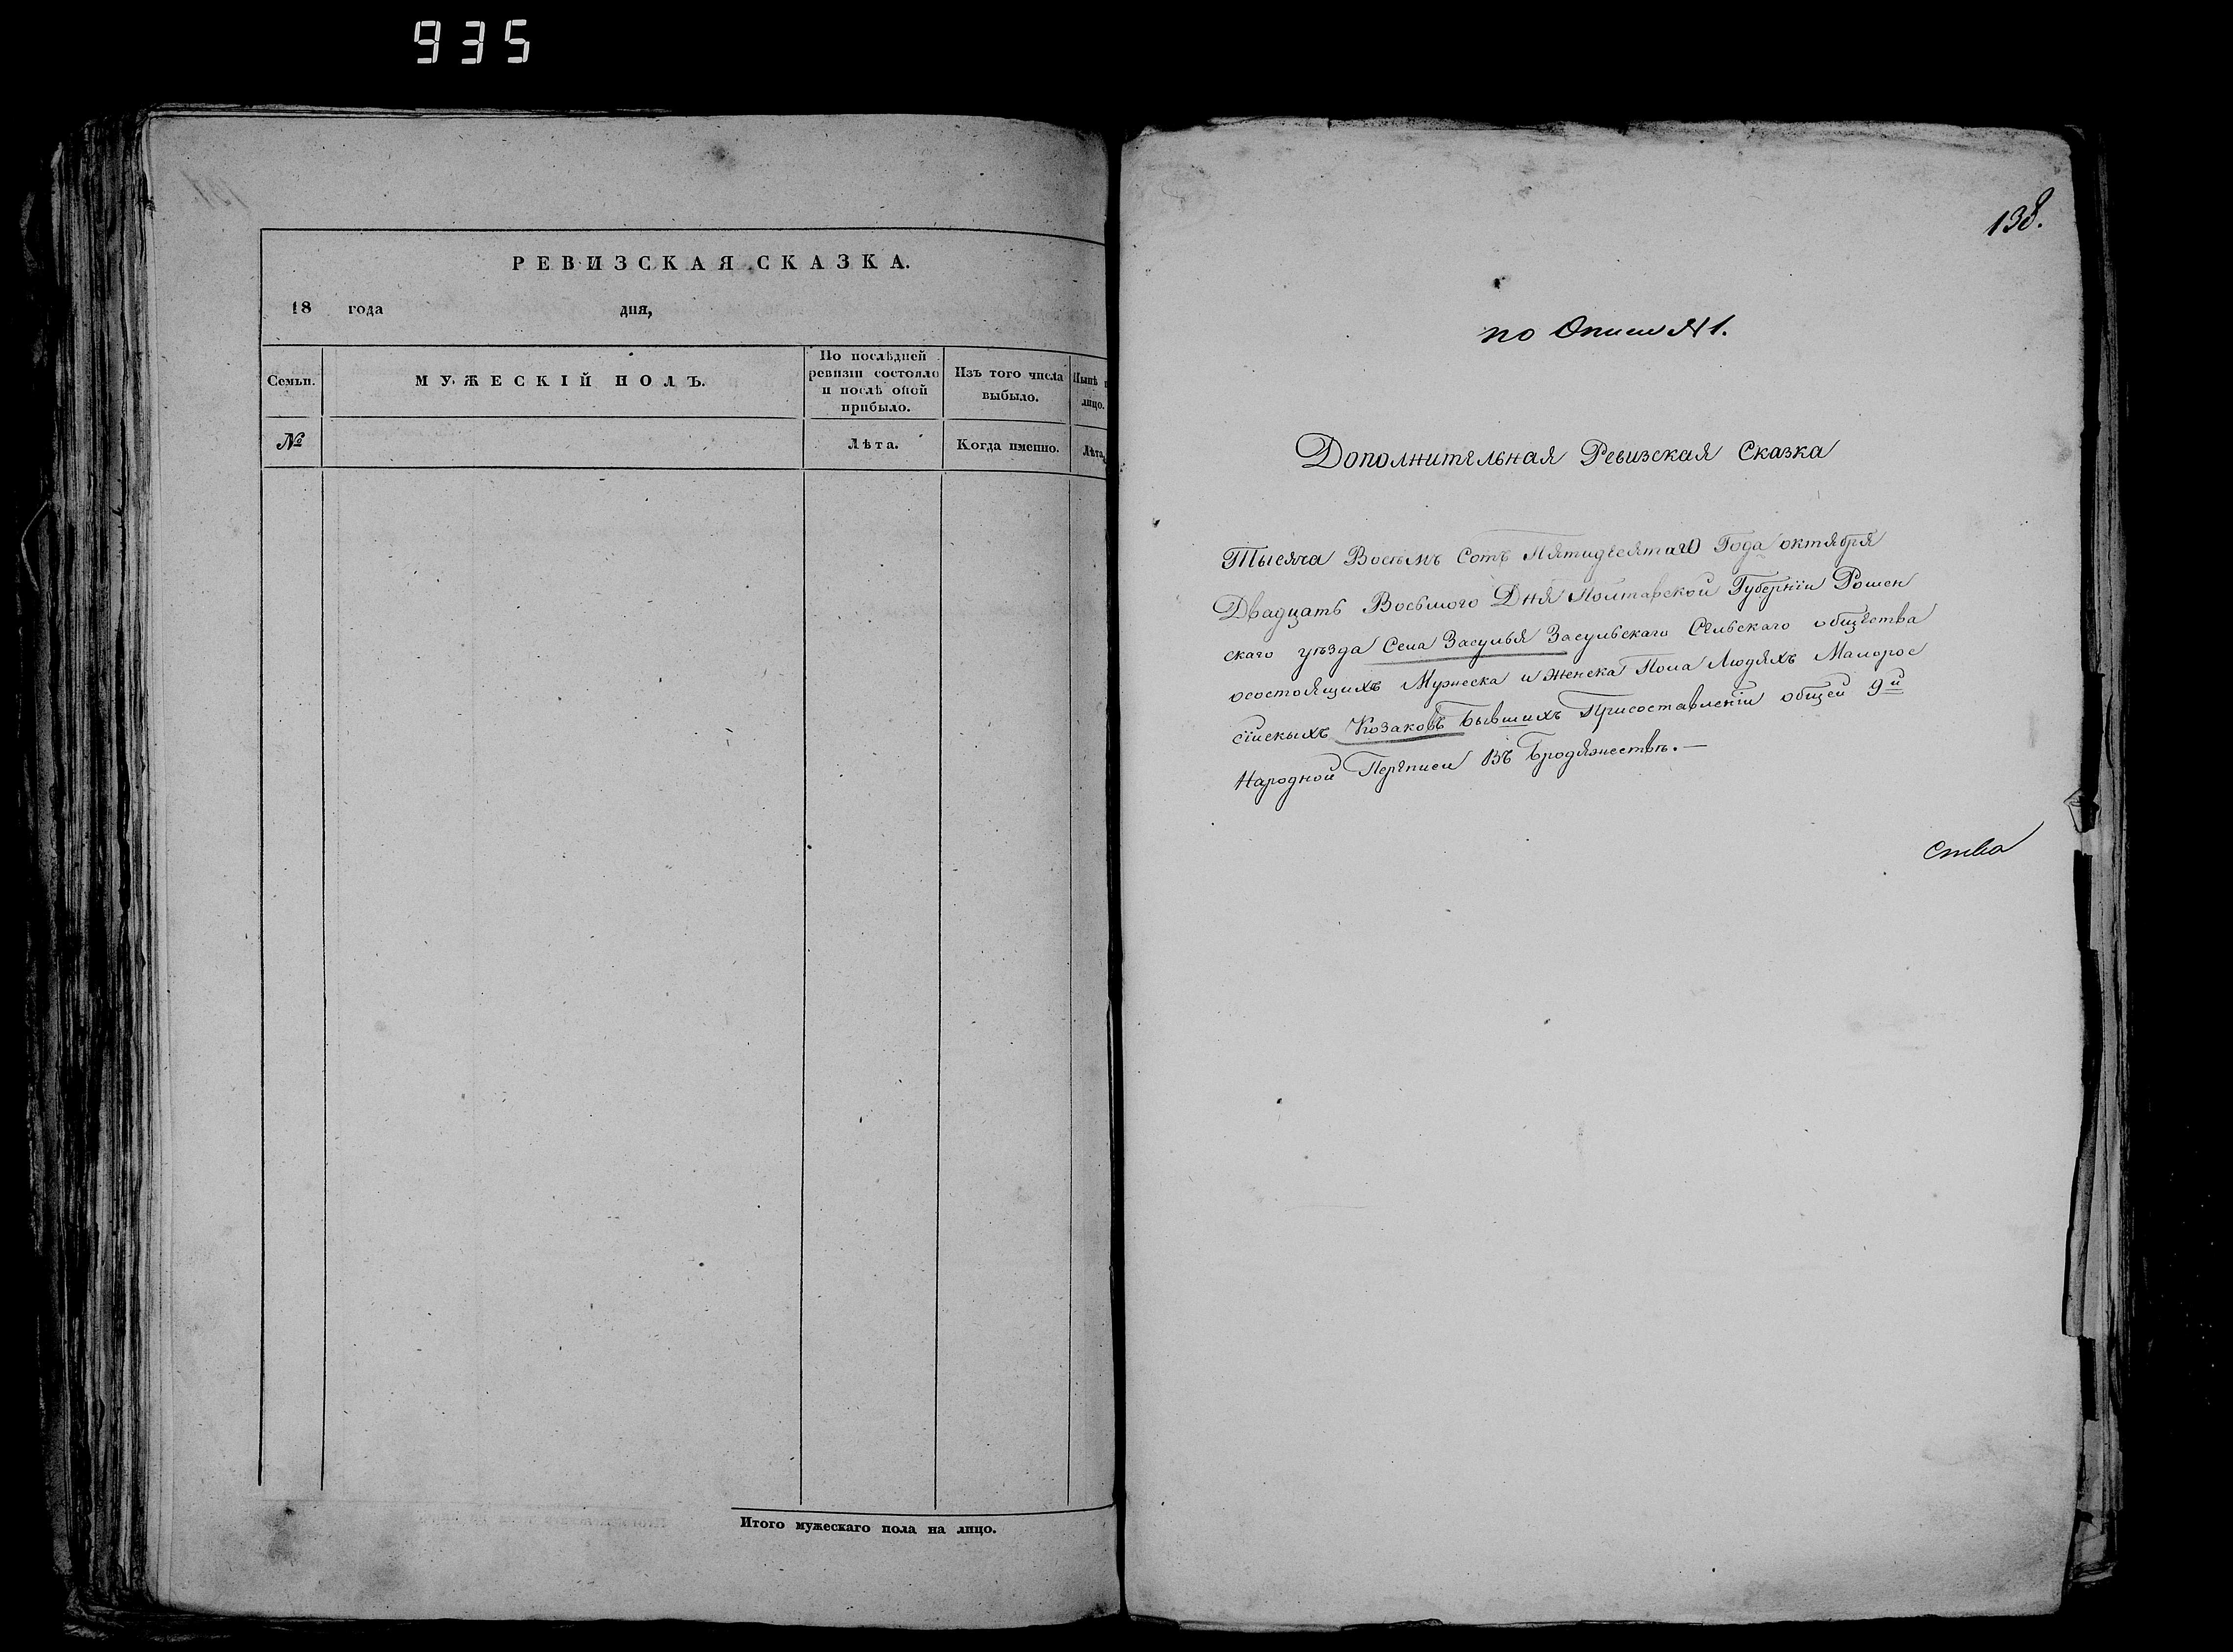 935
РЕВИЗСКАЯ СКАЗКА.
18 года дня,
Семьи.
МУЖЕСКІЙ ПОЛЪ.
По послѣдней
ревизіи состояло
и послѣ оной
прибыло.
Изъ того числа
выбыло.
Нынѣ н
лицо.
№
Лѣта.
Когда именно.
Лѣта.
Итого мужескаго пола на лицо.
138.
по Описи № 1.
Дополнительная Ревизская Сказка
Тысяча Восемь Сотъ Пятидесятаго Года октября
Двадцать Восьмого Дня Полтавской Губерніи Ромен
скаго уѣзда Села Засулья Засульскаго Сельскаго общества
осостоящихъ Мужеска и женска Пола Людяхъ Малорос
сійскыхъ Козаковъ Бывшихъ Присоставленіи общей 9й
Народной Переписи Въ Бродяжествѣ.—
Ства